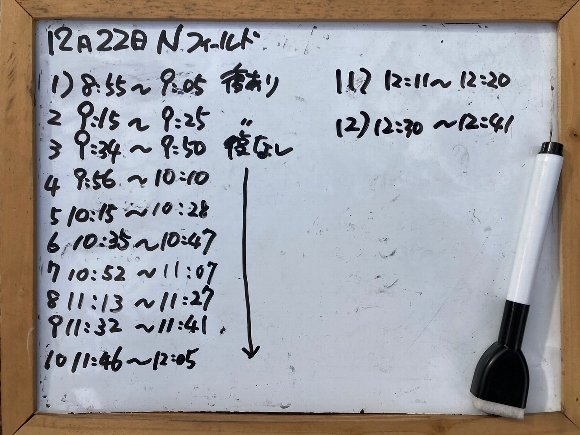 12月22日 Nフィールド
1) 8:55～9:05
2 9:15～9:25 〃
3 9:34～9:50 なし
4 9:56～10:10
5 10:15～10:28
6 10:35～10:47
7 10:52～11:07
8 11:13～11:27
9 11:32～11:41
10 11:46～12:05
11) 12:11～12:20
12) 12:30～12:41